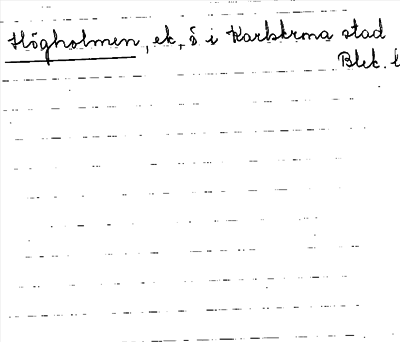 Högholmen, ek, ö i Karlskrona stad
Blek. l